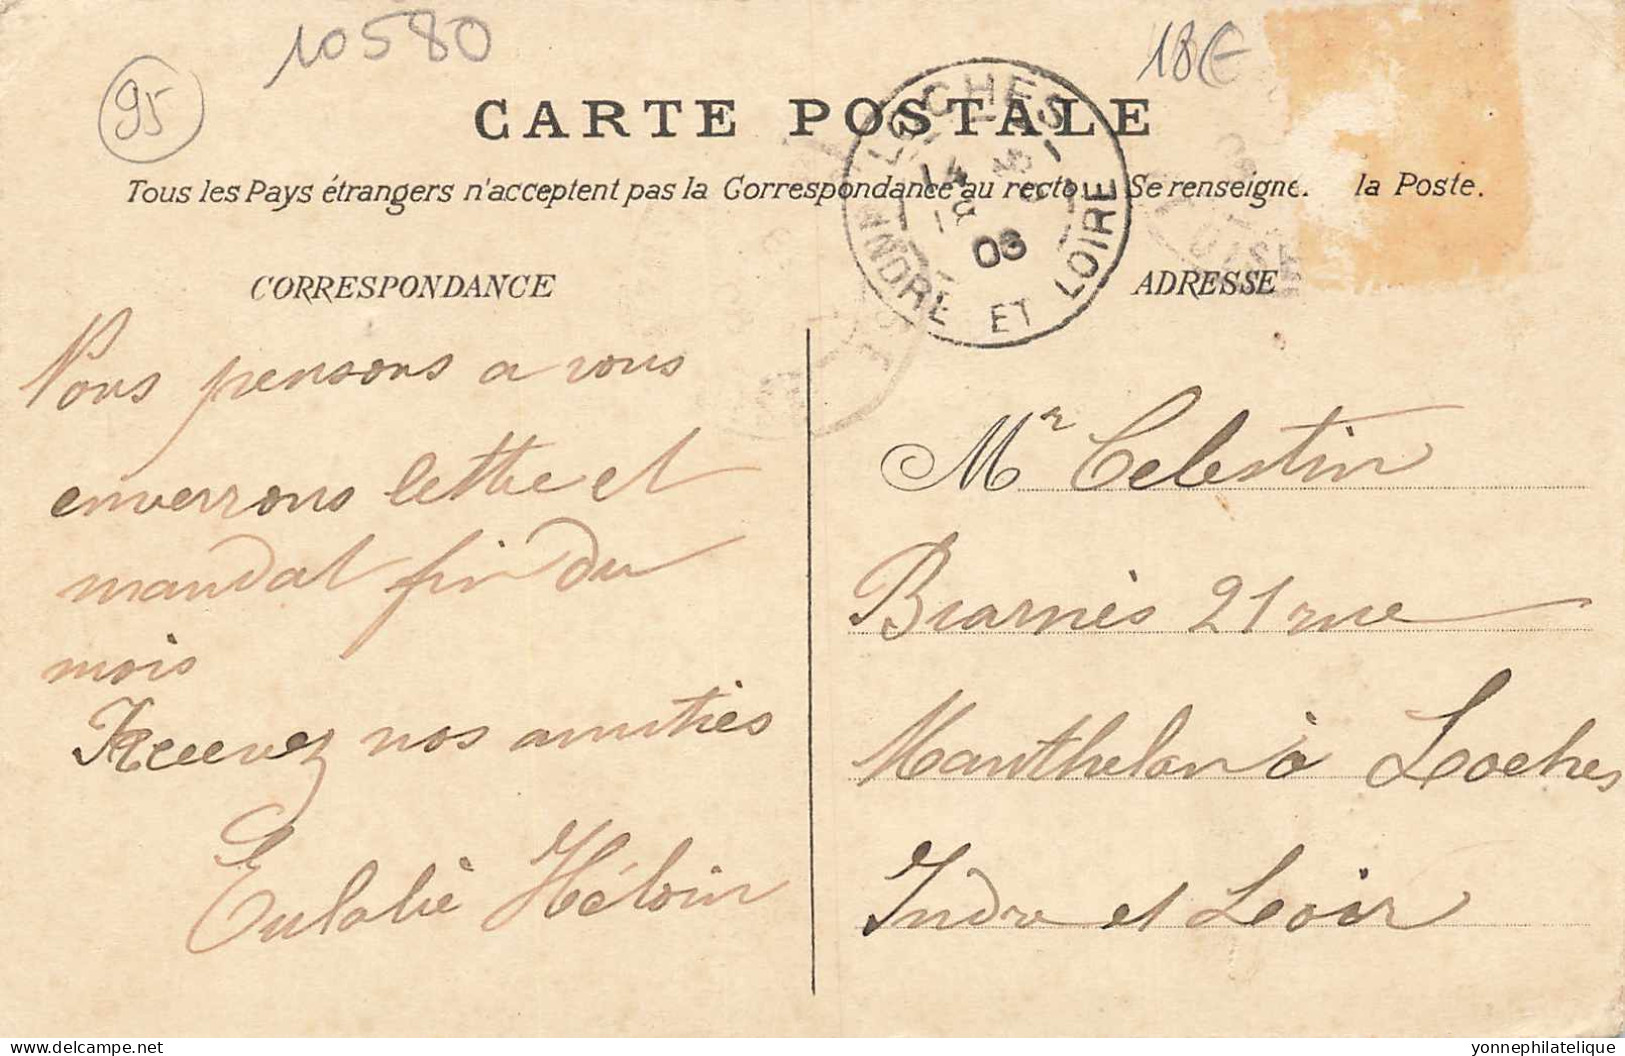 10580
18€
95
CARTE POSTALE
Tous les Pays étrangers n'acceptent pas la Correspondance au recto Se renseigne. la Poste.
LOCHES
14
08
INDRE ET LOIRE
CORRESPONDANCE
ADRESSE
Nous pensons a vous
enverrons lettre et
mandat fin du
mois
Recevez nos amitiés
Eulalie Héloin
Mr Celestin
Biarnès 21 rue
Manthelan à Loches
Indre et Loir
yonnephilatelique